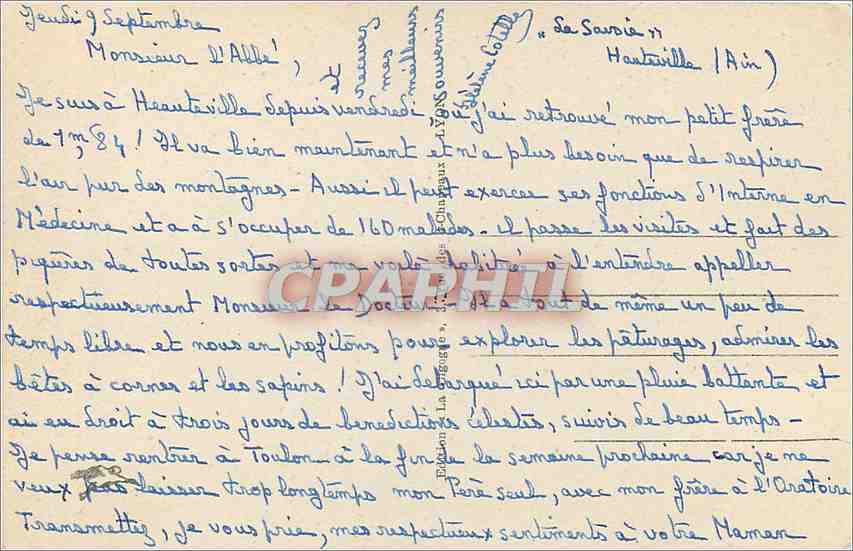 Jeudi 9 Septembre
Monsieur l'Abbé,
"La Savoie"
Hauteville (Ain)
Je suis à Heauteville depuis vendredi où j'ai retrouvé mon petit frère
de 1m,84! Il va bien maintenant et n'a plus besoin que de respirer
l'air pur des montagnes - Aussi il peut exercer ses fonctions d'Interne en
Médecine et a à s'occuper de 160 malades - il passe les visites et fait des
piqûres de toutes sortes et me voilà habituée à l'entendre appeller
respectueusement Monsieur le Docteur - Il a tout de même un peu de
temps libre et nous en profitons pour explorer les pâturages, admirer les
bêtes à cornes et les sapins! J'ai débarqué ici par une pluie battante et
ai eu droit à trois jours de benedictions célestes, suivis de beau temps -
Je pense rentrer à Toulon à la fin de la semaine prochaine car je ne
veux pas laisser trop longtemps mon Père seul, avec mon frère à l'Oratoire
Transmettez, je vous prie, mes respectueux sentiments à votre Maman
et
recevez
mes
meilleurs
souvenirs
Hélène
Edition La Cigogne, des Chapeaux - LYON
CPARAMA